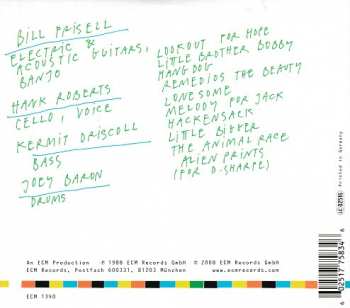 BILL FRISELL
ELECTRIC &
ACOUSTIC GUITARS,
BANJO
HANK ROBERTS
CELLO, VOICE
KERMIT DRISCOLL
BASS
JOEY BARON
DRUMS
LOOKOUT FOR HOPE
LITTLE BROTHER BOBBY
HANGDOG
REMEDIOS THE BEAUTY
LONESOME
MELODY FOR JACK
HACKENSACK
LITTLE BIGGER
THE ANIMAL RACE
ALIEN PRINTS
(FOR D. SHARPE)
An ECM Production ℗ 1988 ECM Records GmbH © 2008 ECM Records GmbH
ECM Records, Postfach 600331, 81203 München www.ecmrecords.com
ECM 1350
LC 02516 Printed in Germany
02517 75834 6